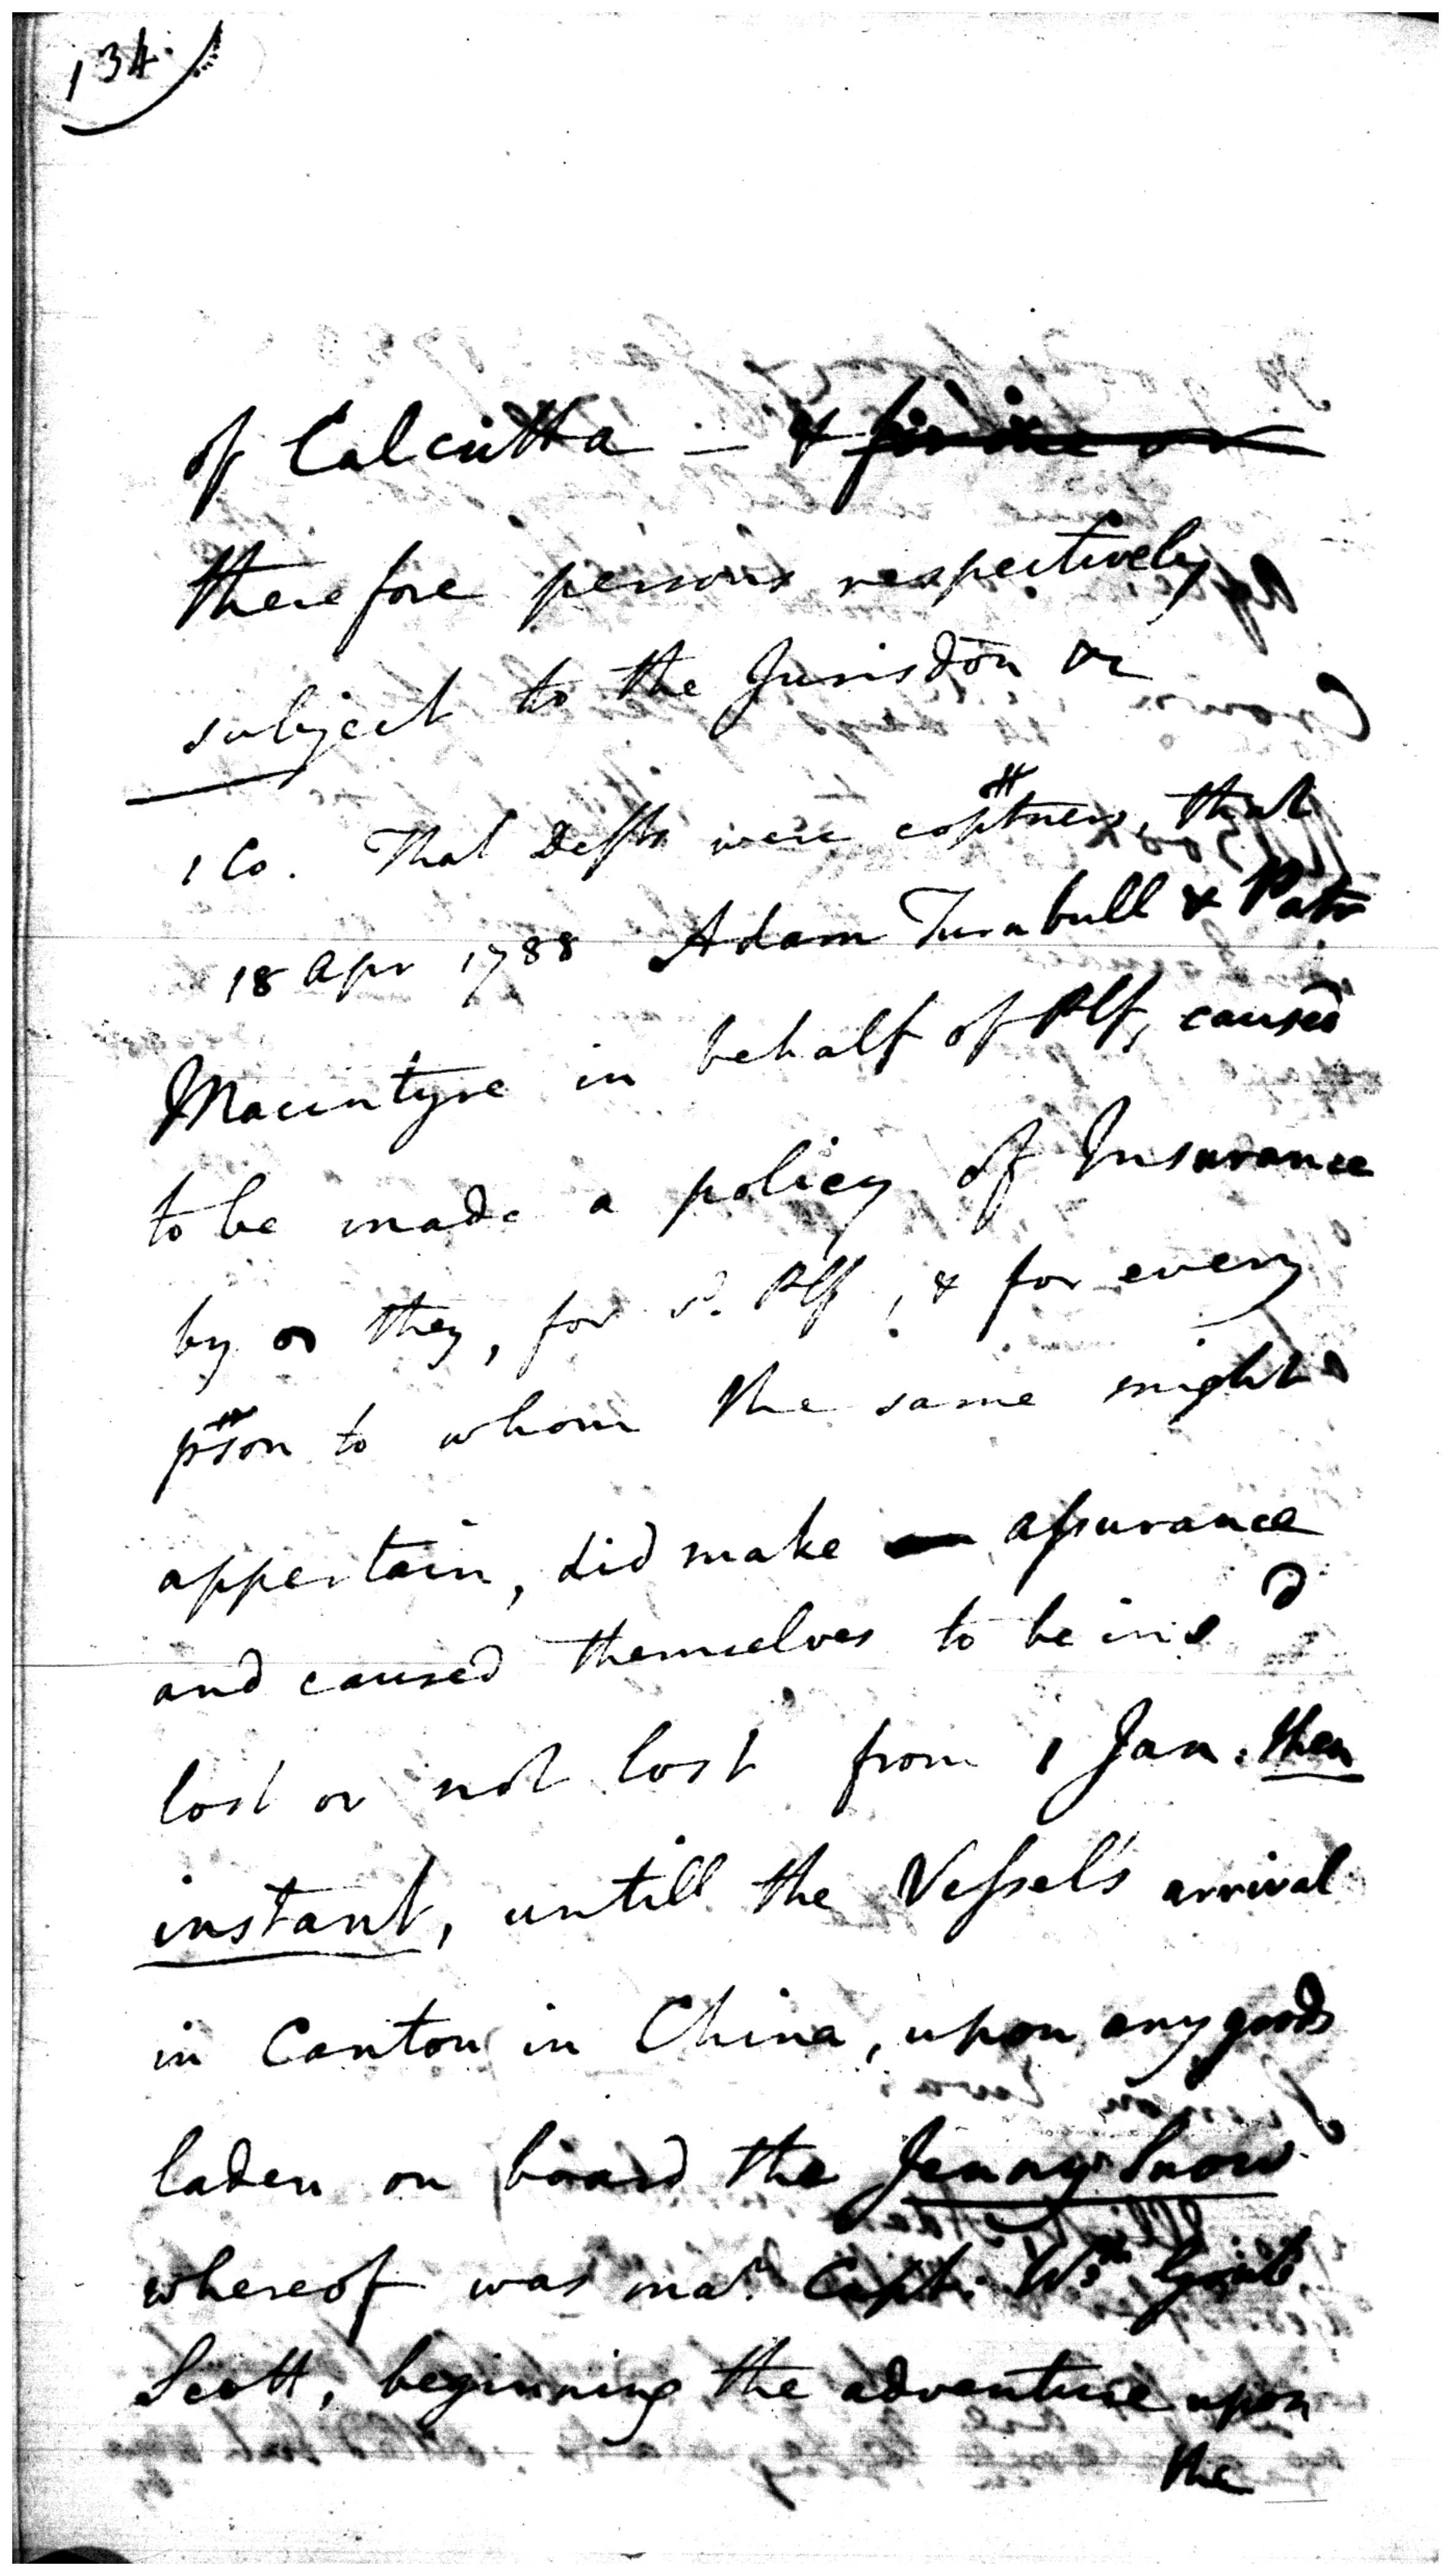 134
of Calcutta — &
therefore persons respectively
subject to the Jurisdon &c
1 Co. That Defts were coptners, that
18 Apr 1788 Adam Turnbull & Patr
Macintyre in behalf of Plf, caused
to be made a policy of Insurance
by they, for sd. Plf, & for every
pson to whom the same might
appertain, did make assurance
and caused themselves to be insd
lost or not lost from 1 Jan. then
instant, untill the Vessel's arrival
in Canton in China, upon any goods
laden on board the Jenny Snow
whereof was mar. Capt. Wm
Scott, beginning the adventure upon
the